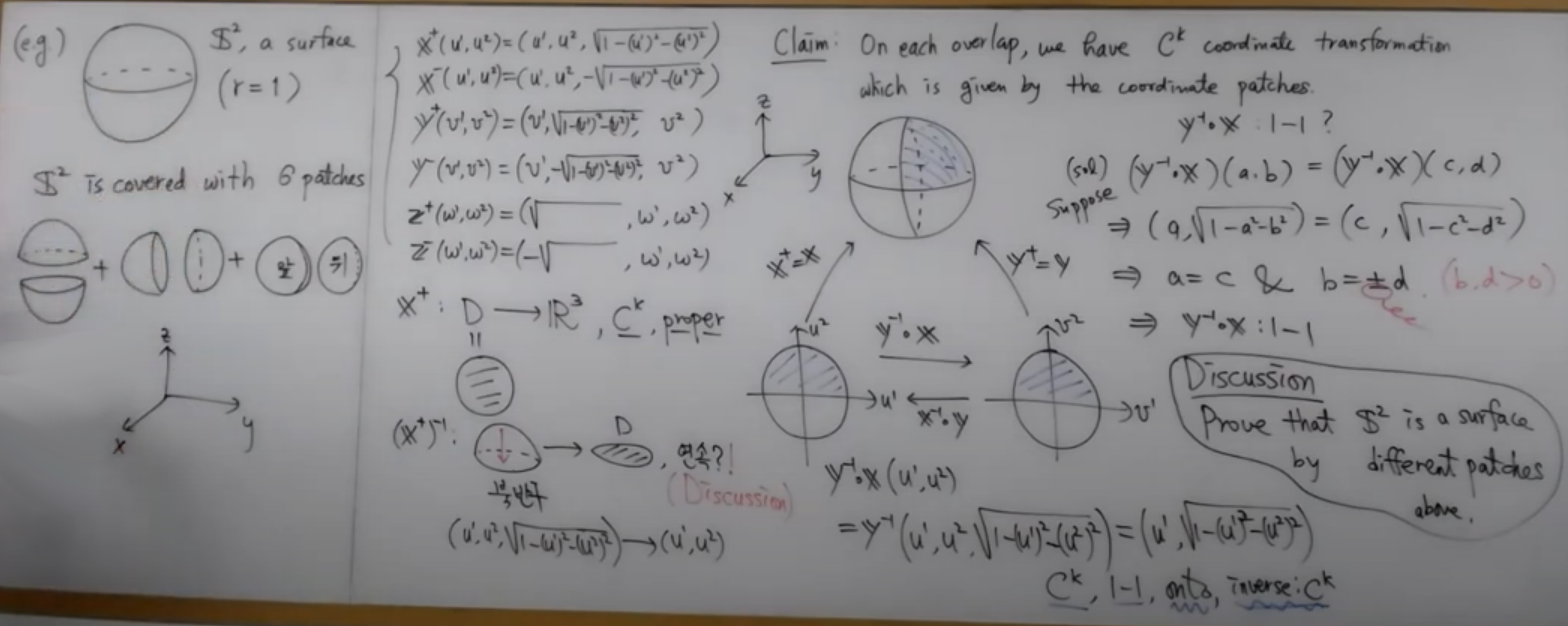 (e.g)
S², a surface
(r=1)
S² is covered with 6 patches
+ + 앞 뒤
z
x
y
x⁺(u¹,u²)=(u¹,u²,√(1-(u¹)²-(u²)²))
x⁻(u¹,u²)=(u¹,u²,-√(1-(u¹)²-(u²)²))
y⁺(v¹,v²)=(v¹,√(1-(v¹)²-(v²)²), v²)
y⁻(v¹,v²)=(v¹,-√(1-(v¹)²-(v²)²), v²)
z⁺(ω¹,ω²)=(√ , ω¹,ω²)
z⁻(ω¹,ω²)=(-√ , ω¹,ω²)
x⁺: D → ℝ³, Cᵏ, proper
=
(x⁺)⁻¹: → D, 연속?!
(Discussion)
(u¹,u²,√(1-(u¹)²-(u²)²)) → (u¹,u²)
Claim: On each overlap, we have Cᵏ coordinate transformation
which is given by the coordinate patches.
z
x
y
x⁺=x
y⁺=y
u²
u¹
y⁻¹∘x
x⁻¹∘y
v²
v¹
y⁻¹∘x(u¹,u²)
=y⁻¹(u¹,u²,√(1-(u¹)²-(u²)²))=(u¹,√(1-(u¹)²-(u²)²))
Cᵏ, 1-1, onto, inverse:Cᵏ
y⁻¹∘x : 1-1 ?
(sol) (y⁻¹∘x)(a,b) = (y⁻¹∘x)(c,d)
Suppose
⇒ (a,√(1-a²-b²)) = (c,√(1-c²-d²))
⇒ a=c & b=±d. (b,d>0)
⇒ y⁻¹∘x : 1-1
Discussion
Prove that S² is a surface
by different patches
above.